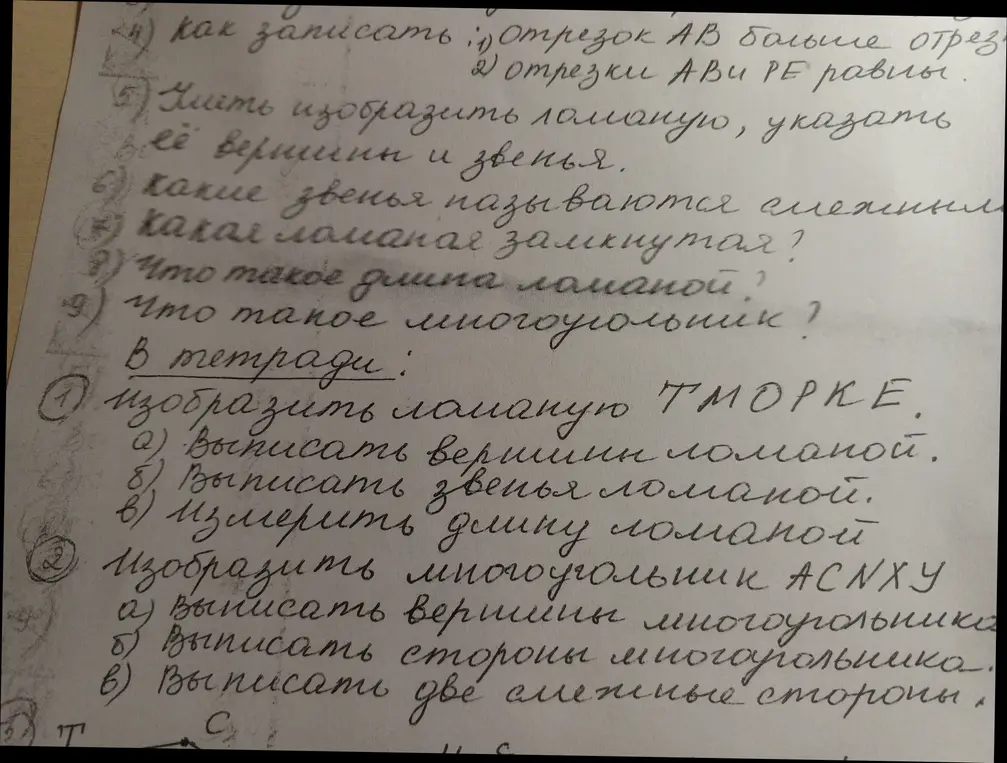 4) Как записать: 1) отрезок АВ больше отрез
2) отрезки АВ и РЕ равны.
5) Уметь изобразить ломаную, указать
её вершины и звенья.
6) Какие звенья называются смежным
7) Какая ломаная замкнутая?
8) Что такое длина ломаной?
9) Что такое многоугольник?
В тетради:
1 Изобразить ломаную ТМОРКЕ.
а) Выписать вершины ломаной.
б) Выписать звенья ломаной.
в) Измерить длину ломаной
2 Изобразить многоугольник ACNXY
а) Выписать вершины многоугольника
б) Выписать стороны многоугольника.
в) Выписать две смежные стороны.
3) Т С